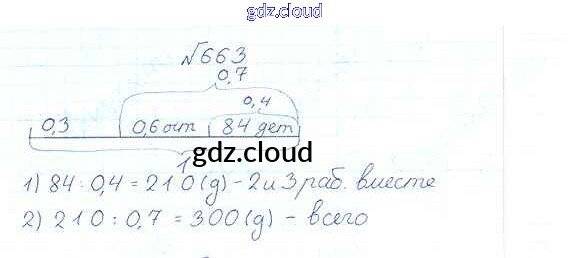 gdz.cloud
№663
0,7
0,4
0,3 0,6 ост 84 дет
1
gdz.cloud
1) 84 : 0,4 = 210 (д) - 2 и 3 раб. вместе
2) 210 : 0,7 = 300 (д) - всего